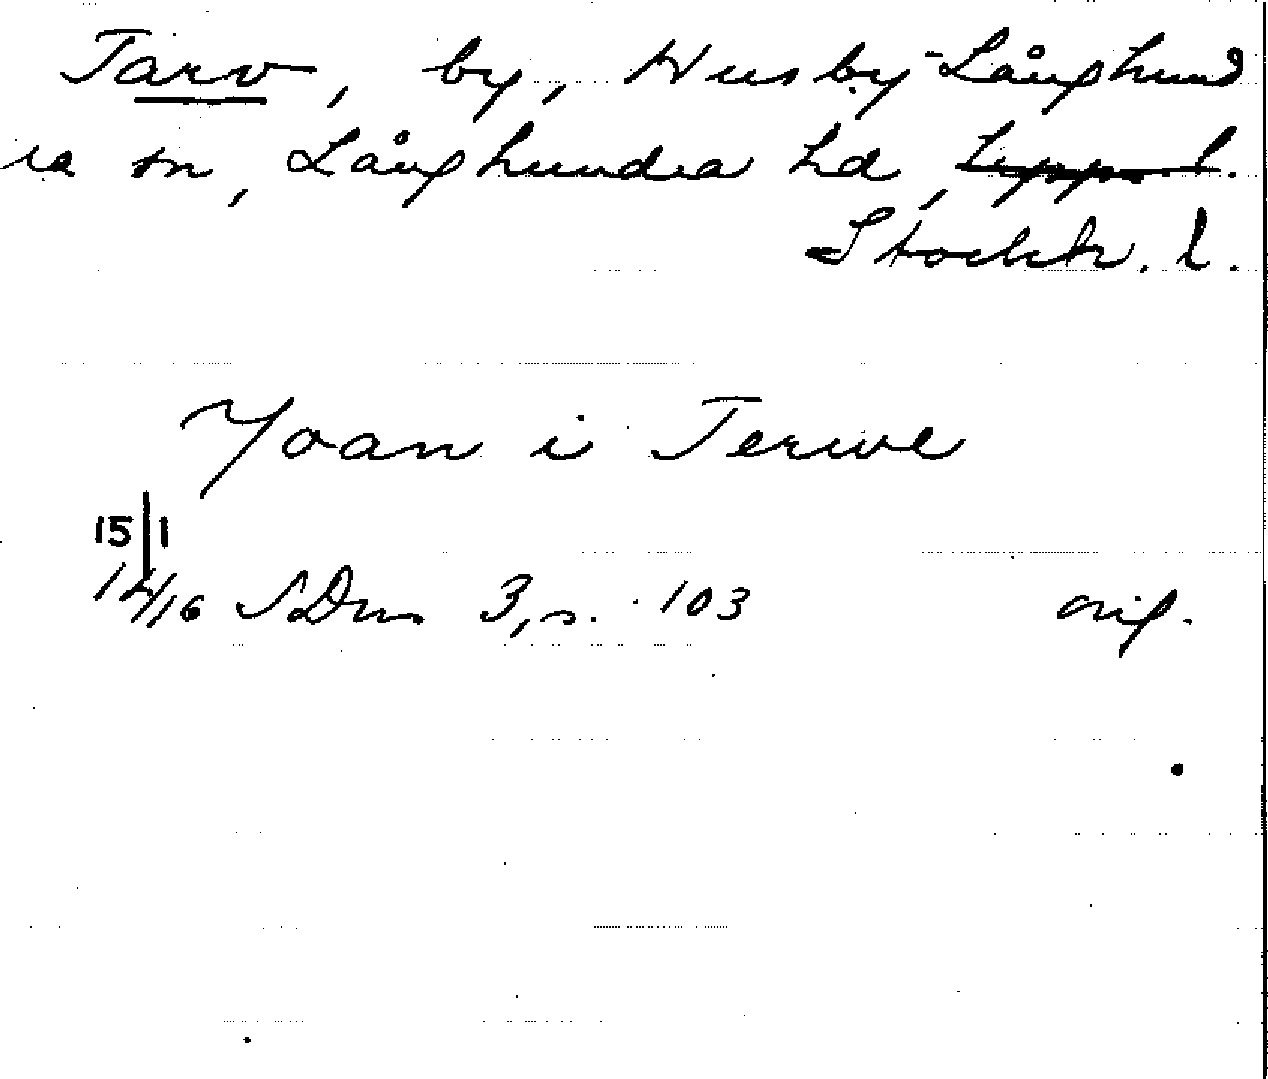 Tarv, by, Husby-Långhund
ra sn, Långhundra hd, Upps. l.
Stockh. l.
Joan i Terwe
15/1
14/16 SDns 3, s. 103 orig.